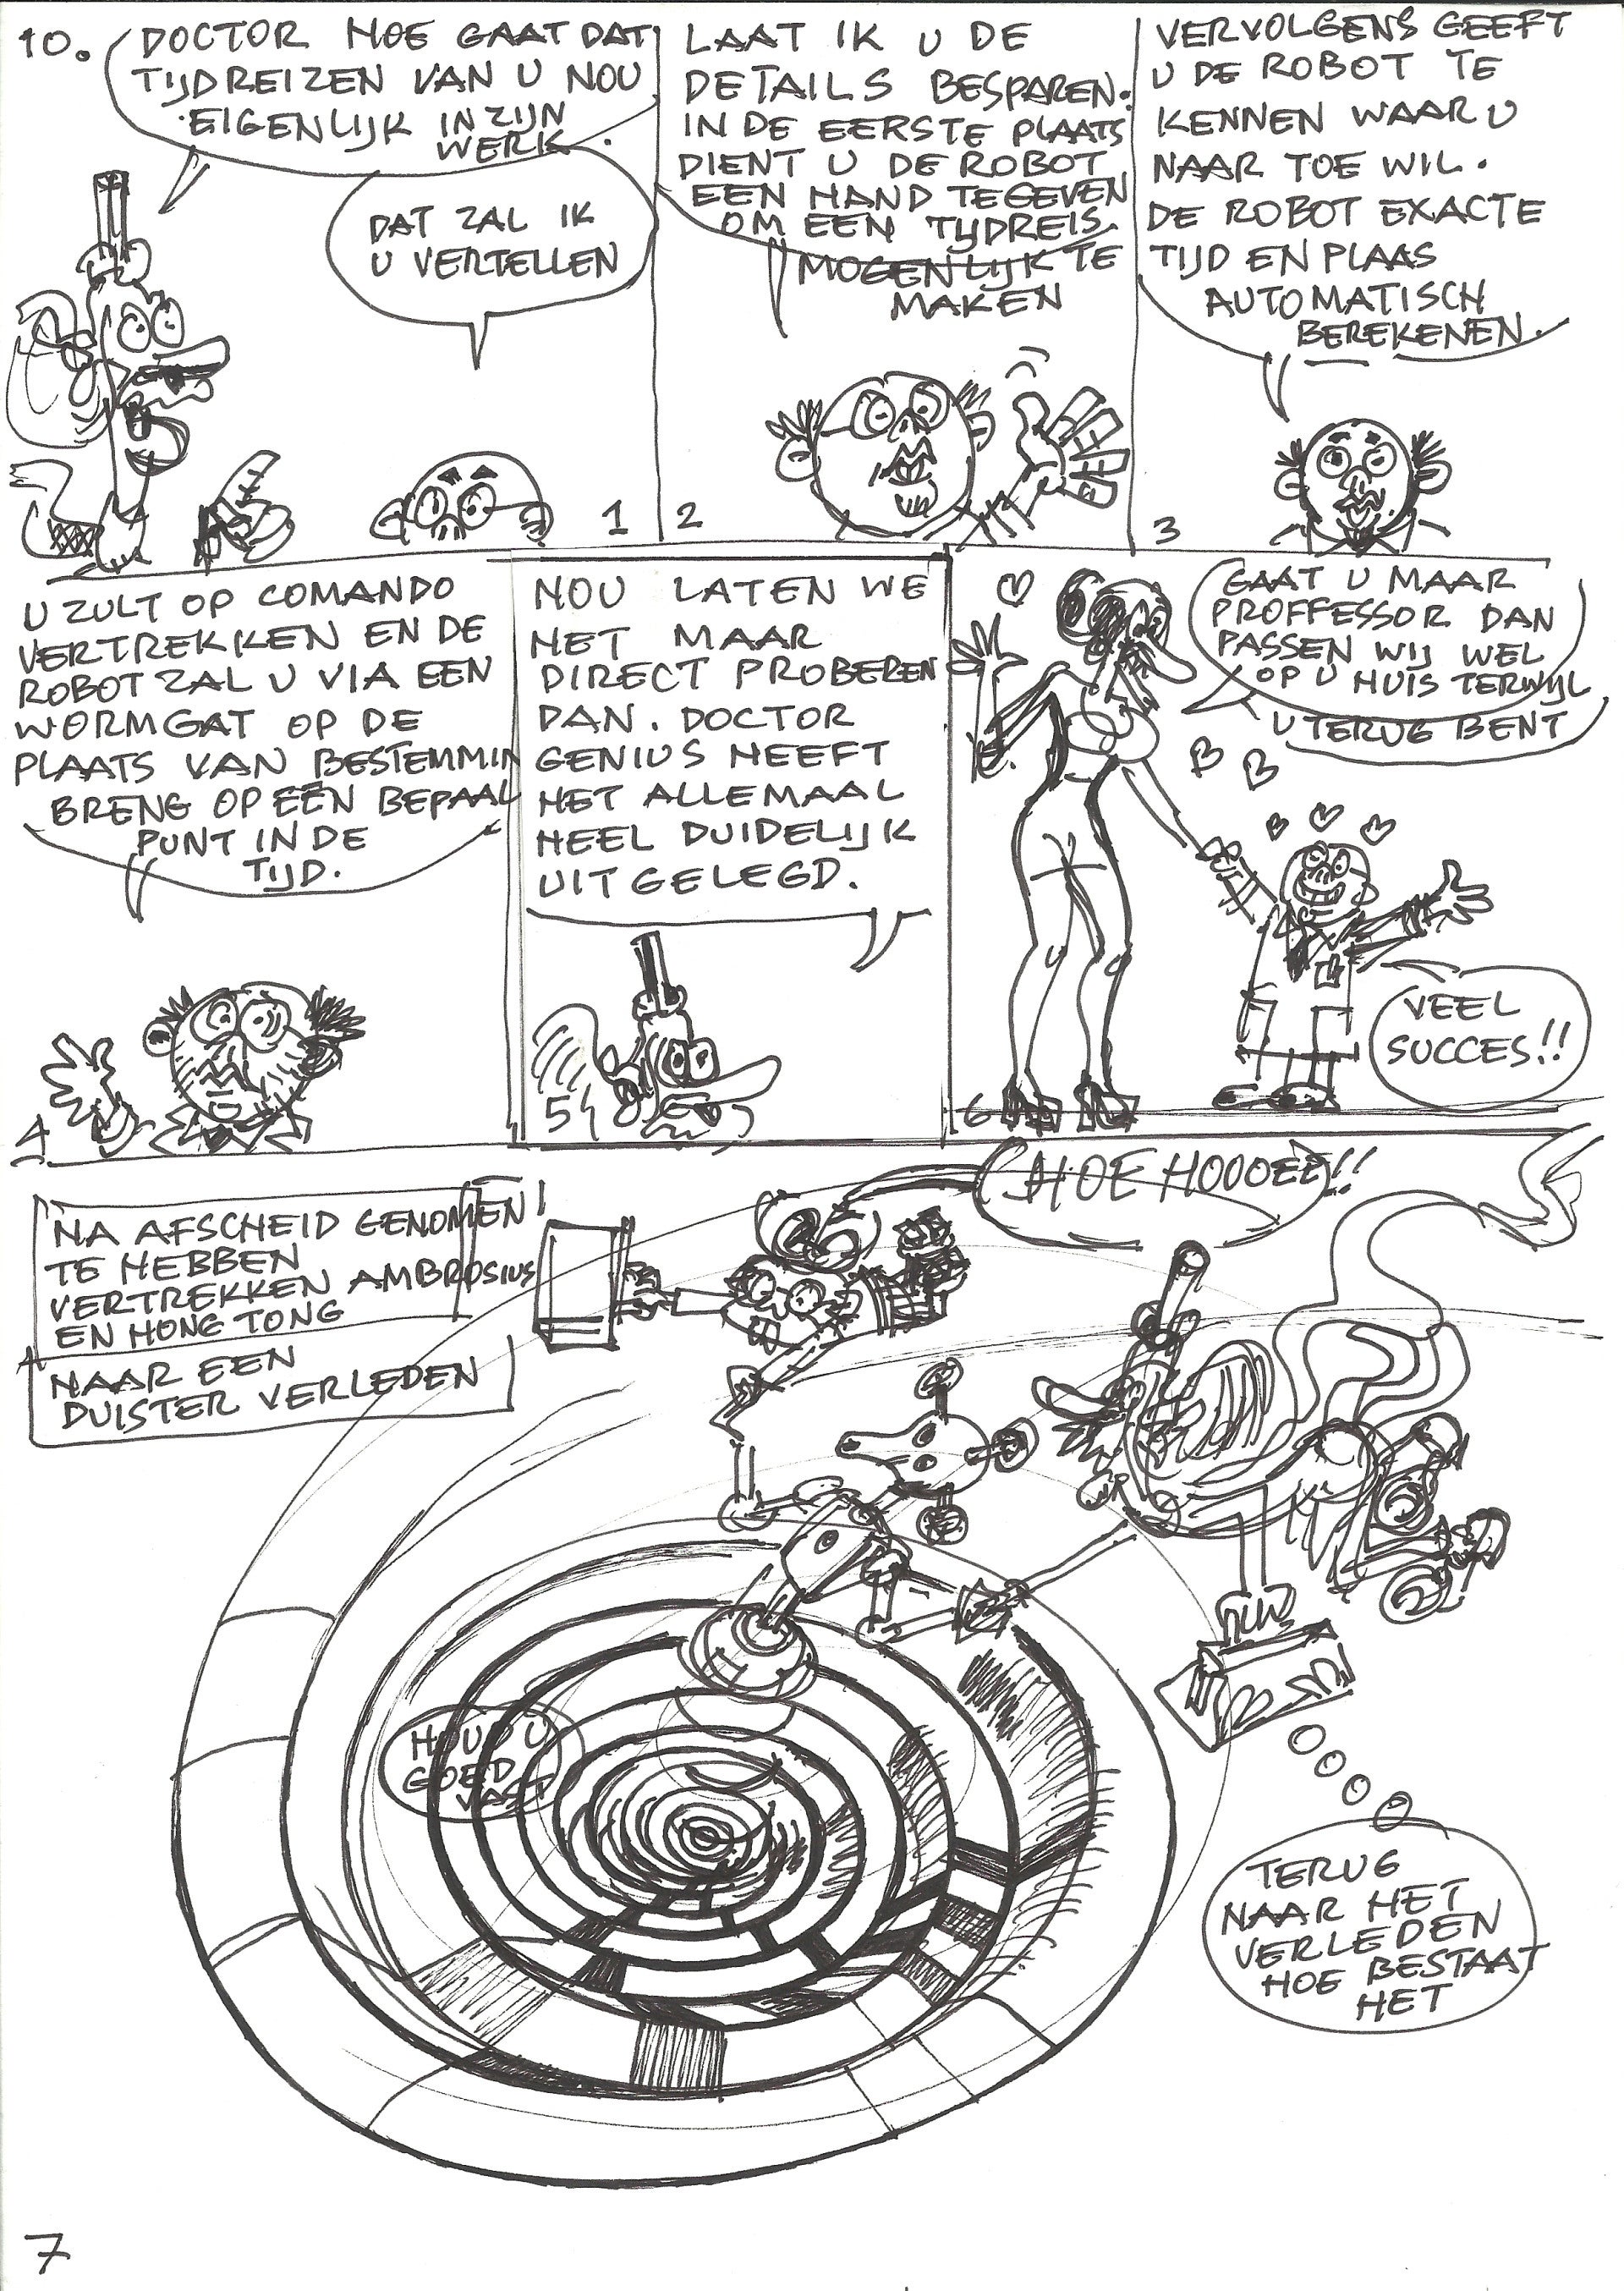 10.
DOCTOR HOE GAAT DAT
TIJDREIZEN VAN U NOU
EIGENLIJK IN ZIJN
WERK.
DAT ZAL IK
U VERTELLEN
1
LAAT IK U DE
DETAILS BESPAREN.
IN DE EERSTE PLAATS
DIENT U DE ROBOT
EEN HAND TE GEVEN
OM EEN TIJDREIS.
MOGENLIJK TE
MAKEN
2
VERVOLGENS GEEFT
U DE ROBOT TE
KENNEN WAAR U
NAAR TOE WIL.
DE ROBOT EXACTE
TIJD EN PLAAS
AUTOMATISCH
BEREKENEN.
3
U ZULT OP COMANDO
VERTREKKEN EN DE
ROBOT ZAL U VIA EEN
WORMGAT OP DE
PLAATS VAN BESTEMMIN
BRENG OP EEN BEPAAL
PUNT IN DE
TIJD.
4
NOU LATEN WE
HET MAAR
DIRECT PROBEREN
DAN. DOCTOR
GENIUS HEEFT
HET ALLEMAAL
HEEL DUIDELIJK
UIT GELEGD.
5
GAAT U MAAR
PROFFESSOR DAN
PASSEN WIJ WEL
OP U HUIS TERWIJL
U TERUG BENT
VEEL
SUCCES!!
6
NA AFSCHEID GENOMEN
TE HEBBEN
VERTREKKEN AMBROSIUS
EN HONG TONG
NAAR EEN
DUISTER VERLEDEN
HOE HOOOEE!!
HOUD U
GOED
VAST
TERUG
NAAR HET
VERLEDEN
HOE BESTAAT
HET
7